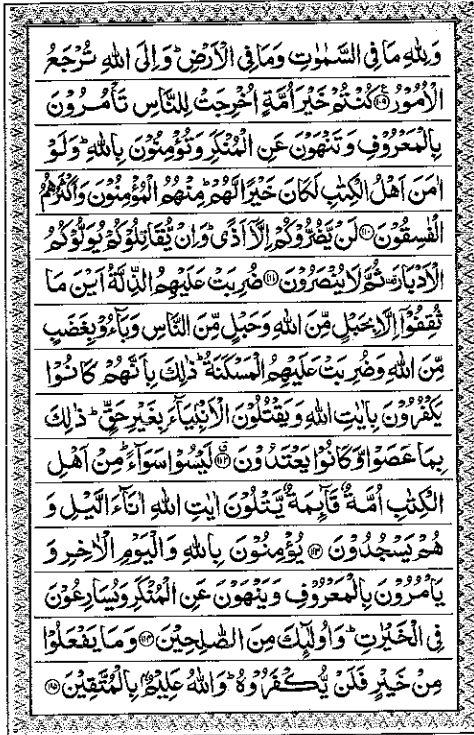 وَلِلّٰهِ مَا فِی السَّمٰوٰتِ وَمَا فِی الْاَرْضِ ؕ وَاِلَی اللّٰهِ تُرْجَعُ
الْاُمُوْرُ ﴿۱۰۹﴾ كُنْتُمْ خَیْرَ اُمَّةٍ اُخْرِجَتْ لِلنَّاسِ تَاْمُرُوْنَ
بِالْمَعْرُوْفِ وَتَنْهَوْنَ عَنِ الْمُنْكَرِ وَتُؤْمِنُوْنَ بِاللّٰهِ ؕ وَلَوْ
اٰمَنَ اَهْلُ الْكِتٰبِ لَكَانَ خَیْرًا لَّهُمْ ؕ مِنْهُمُ الْمُؤْمِنُوْنَ وَاَكْثَرُهُمُ
الْفٰسِقُوْنَ ﴿۱۱۰﴾ لَنْ یَّضُرُّوْكُمْ اِلَّاۤ اَذًی ؕ وَاِنْ یُّقَاتِلُوْكُمْ یُوَلُّوْكُمُ
الْاَدْبَارَ ۟ ثُمَّ لَا یُنْصَرُوْنَ ﴿۱۱۱﴾ ضُرِبَتْ عَلَیْهِمُ الذِّلَّةُ اَیْنَ مَا
ثُقِفُوْۤا اِلَّا بِحَبْلٍ مِّنَ اللّٰهِ وَحَبْلٍ مِّنَ النَّاسِ وَبَآءُوْ بِغَضَبٍ
مِّنَ اللّٰهِ وَضُرِبَتْ عَلَیْهِمُ الْمَسْكَنَةُ ؕ ذٰلِكَ بِاَنَّهُمْ كَانُوْا
یَكْفُرُوْنَ بِاٰیٰتِ اللّٰهِ وَیَقْتُلُوْنَ الْاَنْۢبِیَآءَ بِغَیْرِ حَقٍّ ؕ ذٰلِكَ
بِمَا عَصَوْا وَّكَانُوْا یَعْتَدُوْنَ ﴿۱۱۲﴾ لَیْسُوْا سَوَآءً ؕ مِنْ اَهْلِ
الْكِتٰبِ اُمَّةٌ قَآىِٕمَةٌ یَّتْلُوْنَ اٰیٰتِ اللّٰهِ اٰنَآءَ الَّیْلِ وَ
هُمْ یَسْجُدُوْنَ ﴿۱۱۳﴾ یُؤْمِنُوْنَ بِاللّٰهِ وَالْیَوْمِ الْاٰخِرِ وَ
یَاْمُرُوْنَ بِالْمَعْرُوْفِ وَیَنْهَوْنَ عَنِ الْمُنْكَرِ وَیُسَارِعُوْنَ
فِی الْخَیْرٰتِ ؕ وَاُولٰٓىِٕكَ مِنَ الصّٰلِحِیْنَ ﴿۱۱۴﴾ وَمَا یَفْعَلُوْا
مِنْ خَیْرٍ فَلَنْ یُّكْفَرُوْهُ ؕ وَاللّٰهُ عَلِیْمٌۢ بِالْمُتَّقِیْنَ ﴿۱۱۵﴾